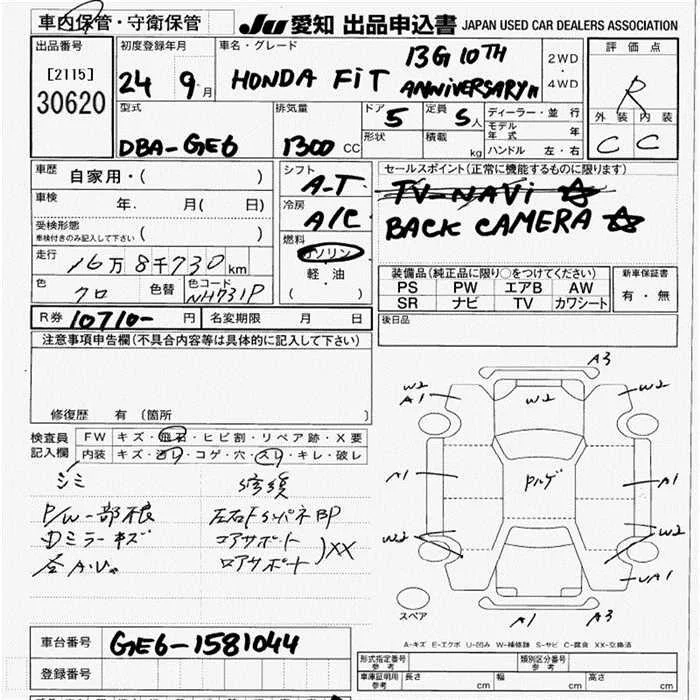 車内保管・守衛保管
JU 愛知 出品申込書 JAPAN USED CAR DEALERS ASSOCIATION
出品番号
[2115]
30620
初度登録年月
24 9 月
車名・グレード
HONDA FiT
13G 10TH
ANNiVERSARY
2WD
・
4WD
評価点
R
外装 内装
C C
型式
DBA-GE6
排気量
1300 CC
ドア
5
定員
5人
形状
積載
kg
ディーラー・並行
モデル年式 年
ハンドル 左・右
車歴 自家用・( )
車検 年. 月( 日)
受検形態
車検付きのみ記入して下さい ( )
走行
16万8千730km
色
クロ
色替
色コード
NH731P
シフト
A-T
冷房
A/C
燃料
ガソリン
軽・油
( )
セールスポイント(正常に機能するものに限ります)
TV-NAVi ☆
BACK CAMERA ☆
装備品(純正品に限り○をつけてください)
PS PW エアB AW
SR ナビ TV カワシート
新車保証書
有・無
R券 10710- 円
名変期限 月 日
後日品
注意事項申告欄(不具合内容等は具体的に記入して下さい)
修復歴 有(箇所 )
検査員
記入欄
FW キズ・飛石・ヒビ割・リペア跡・X要
内装 キズ・汚レ・コゲ・穴・スレ・キレ・破レ
シミ 修復
P/W一部不良 左右Fインパネ BP
Dミラーキズ コアサポート
ロアサポート )XX
A3
W2
A1
W2
W2
A1
Pルーフ
A1
W2
W2
UA1
A1
A3
スペア
A-キズ E-エクボ U-凹み W-補修跡 S-サビ C-腐食 XX-交換済
車台番号 GE6-1581044
登録番号
形式指定番号
参考
類別区分番号
参考
車庫証明用
参考
長さ cm 幅 cm 高さ cm